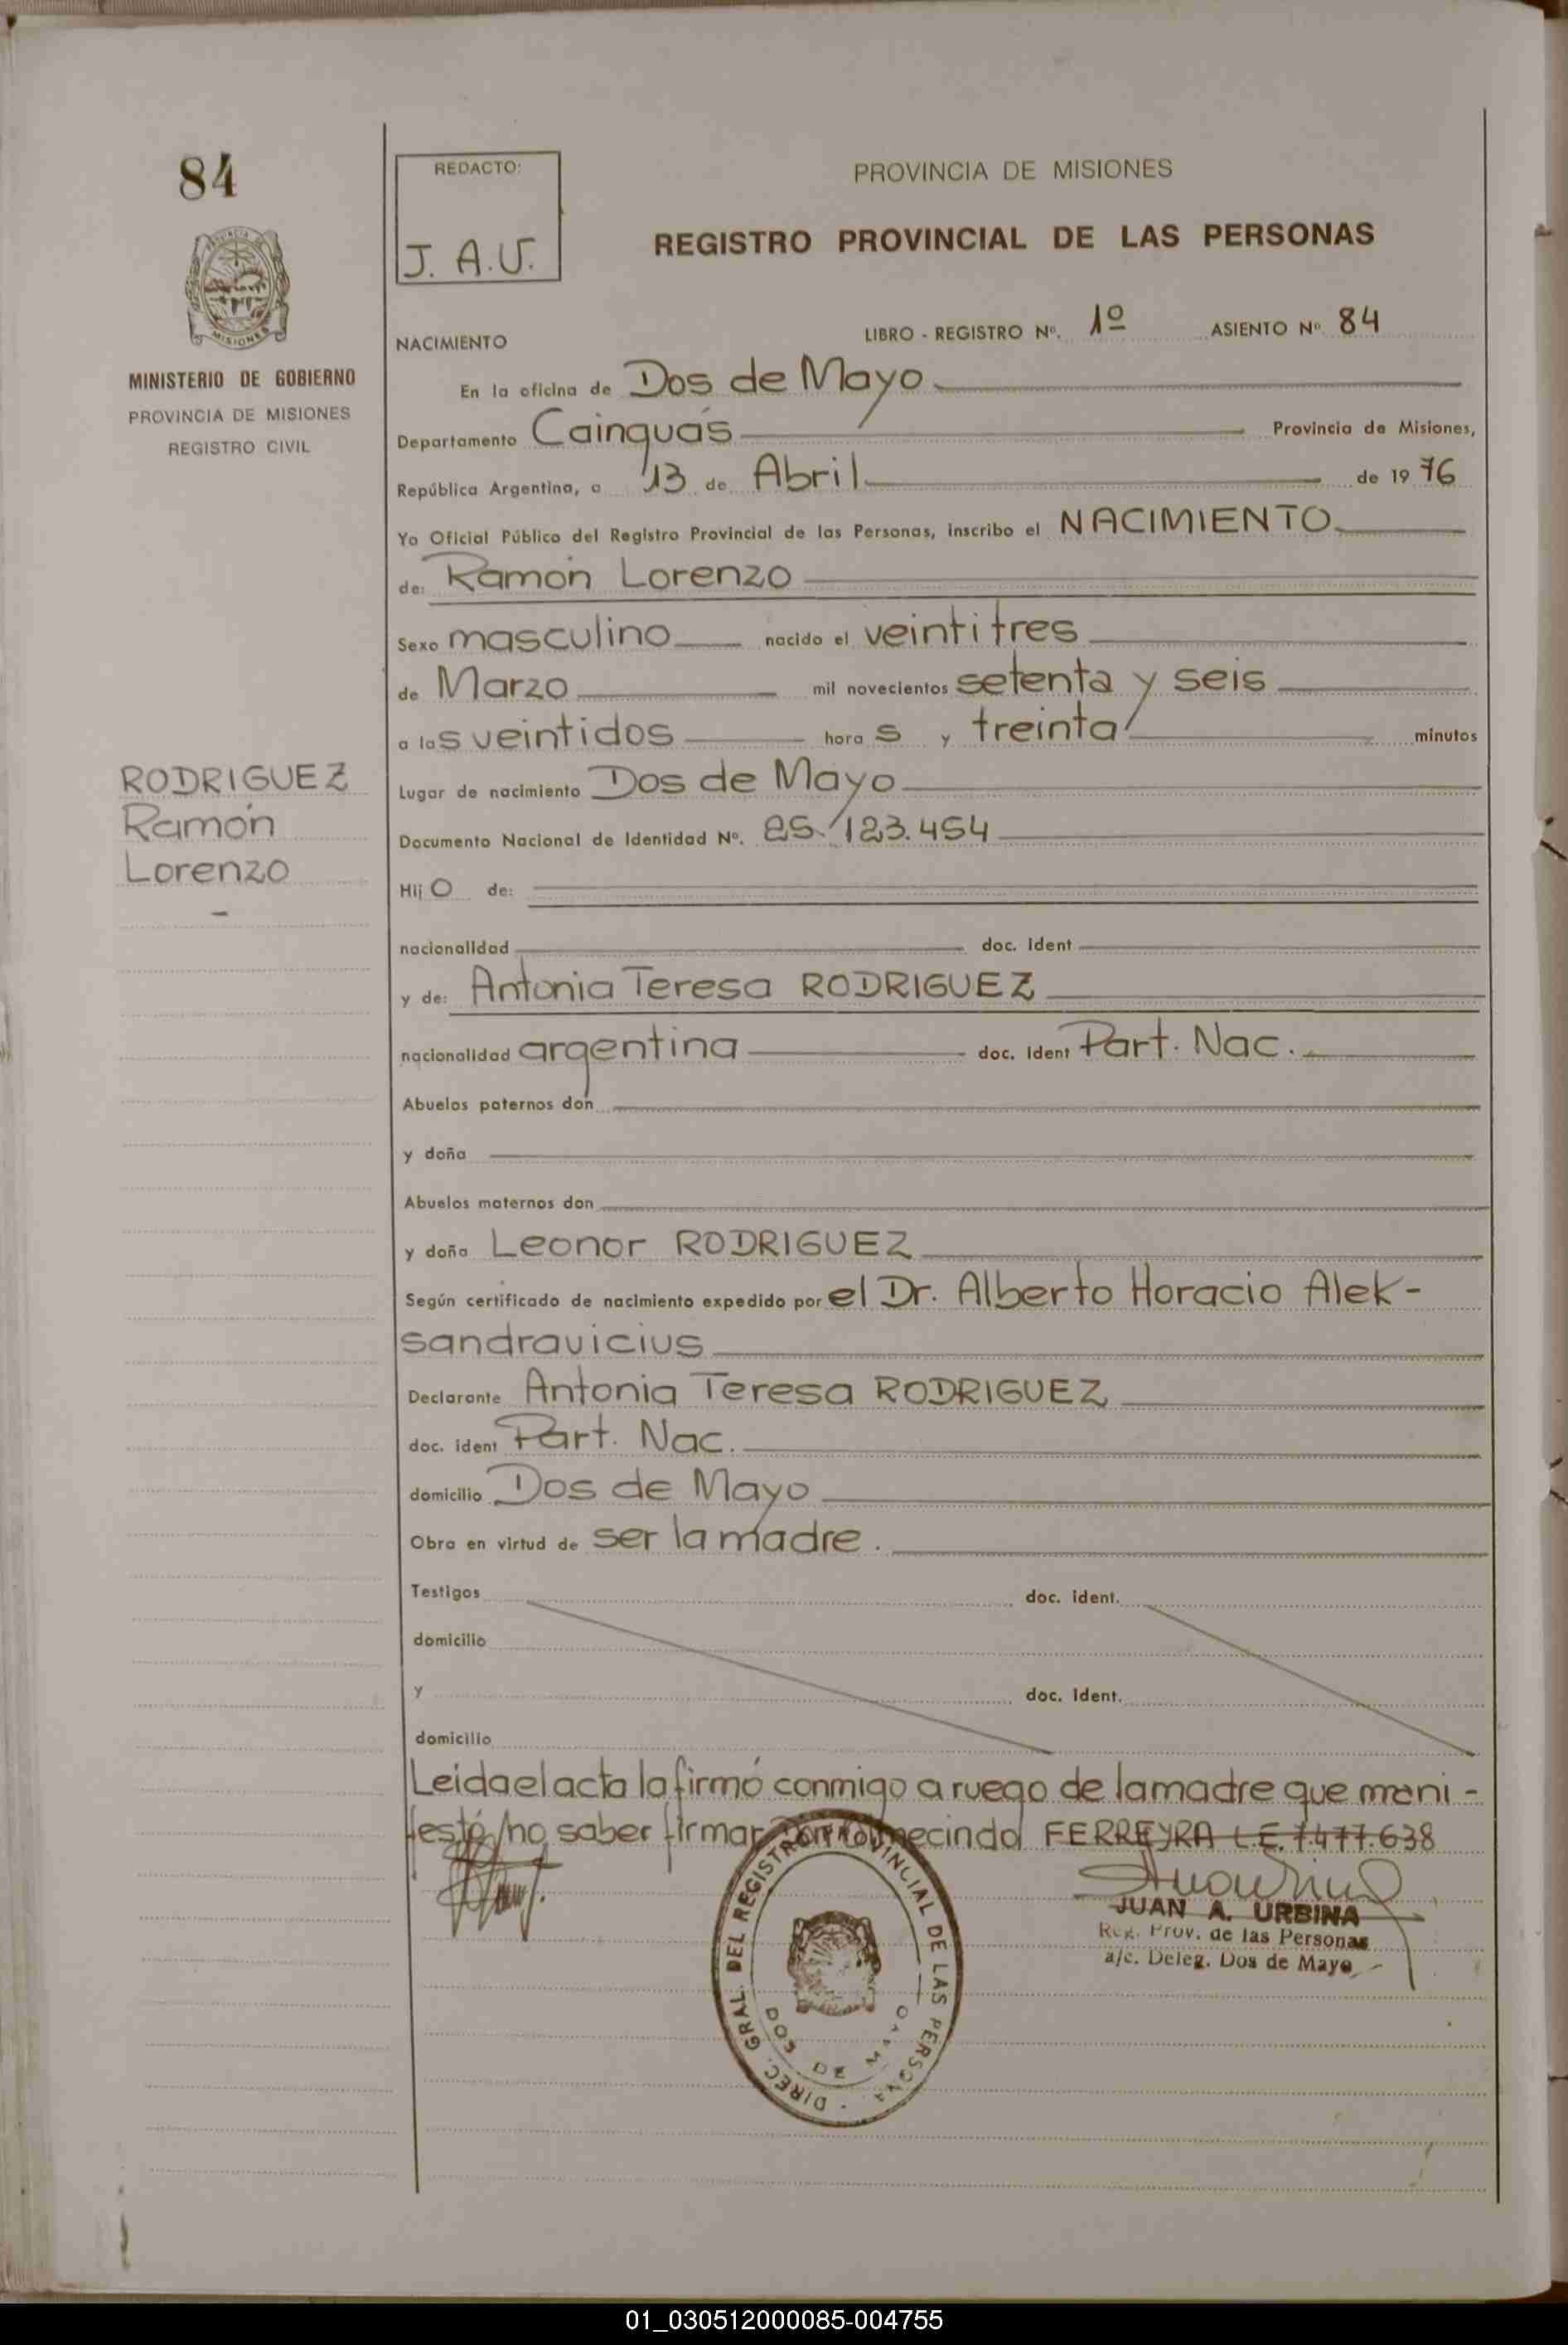 84
REDACTO:
J. A. U.
PROVINCIA DE MISIONES
REGISTRO PROVINCIAL DE LAS PERSONAS
MISIONES
MINISTERIO DE GOBIERNO
PROVINCIA DE MISIONES
REGISTRO CIVIL
NACIMIENTO
LIBRO - REGISTRO Nº. 1º ASIENTO Nº 84
En la oficina de Dos de Mayo
Departamento Cainguás Provincia de Misiones,
República Argentina, a 13 de Abril de 19 76
Yo Oficial Público del Registro Provincial de las Personas, inscribo el NACIMIENTO
de: Ramón Lorenzo
Sexo masculino nacido el veintitres
de Marzo mil novecientos setenta y seis
a las veintidos horas y treinta minutos
RODRIGUEZ
Ramón
Lorenzo
Lugar de nacimiento Dos de Mayo
Documento Nacional de Identidad Nº. 25.123.454
Hijo de:
nacionalidad doc. ident
y de: Antonia Teresa RODRIGUEZ
nacionalidad argentina doc. ident Part. Nac.
Abuelos paternos don
y doña
Abuelos maternos don
y doña Leonor RODRIGUEZ
Según certificado de nacimiento expedido por el Dr. Alberto Horacio Alek-
sandravicius
Declarante Antonia Teresa RODRIGUEZ
doc. ident Part. Nac.
domicilio Dos de Mayo
Obra en virtud de ser la madre.
Testigos doc. ident.
domicilio
y doc. ident.
domicilio
Leida el acta la firmó conmigo a ruego de la madre que mani-
festó no saber firmar Don FERREYRA L.E. 7.477.638
DIREC. GRAL. DEL REGISTRO PROVINCIAL DE LAS PERSONA
DOS DE MAYO
JUAN A. URBINA
Reg. Prov. de las Personas
a/c. Deleg. Dos de Mayo
01_030512000085-004755